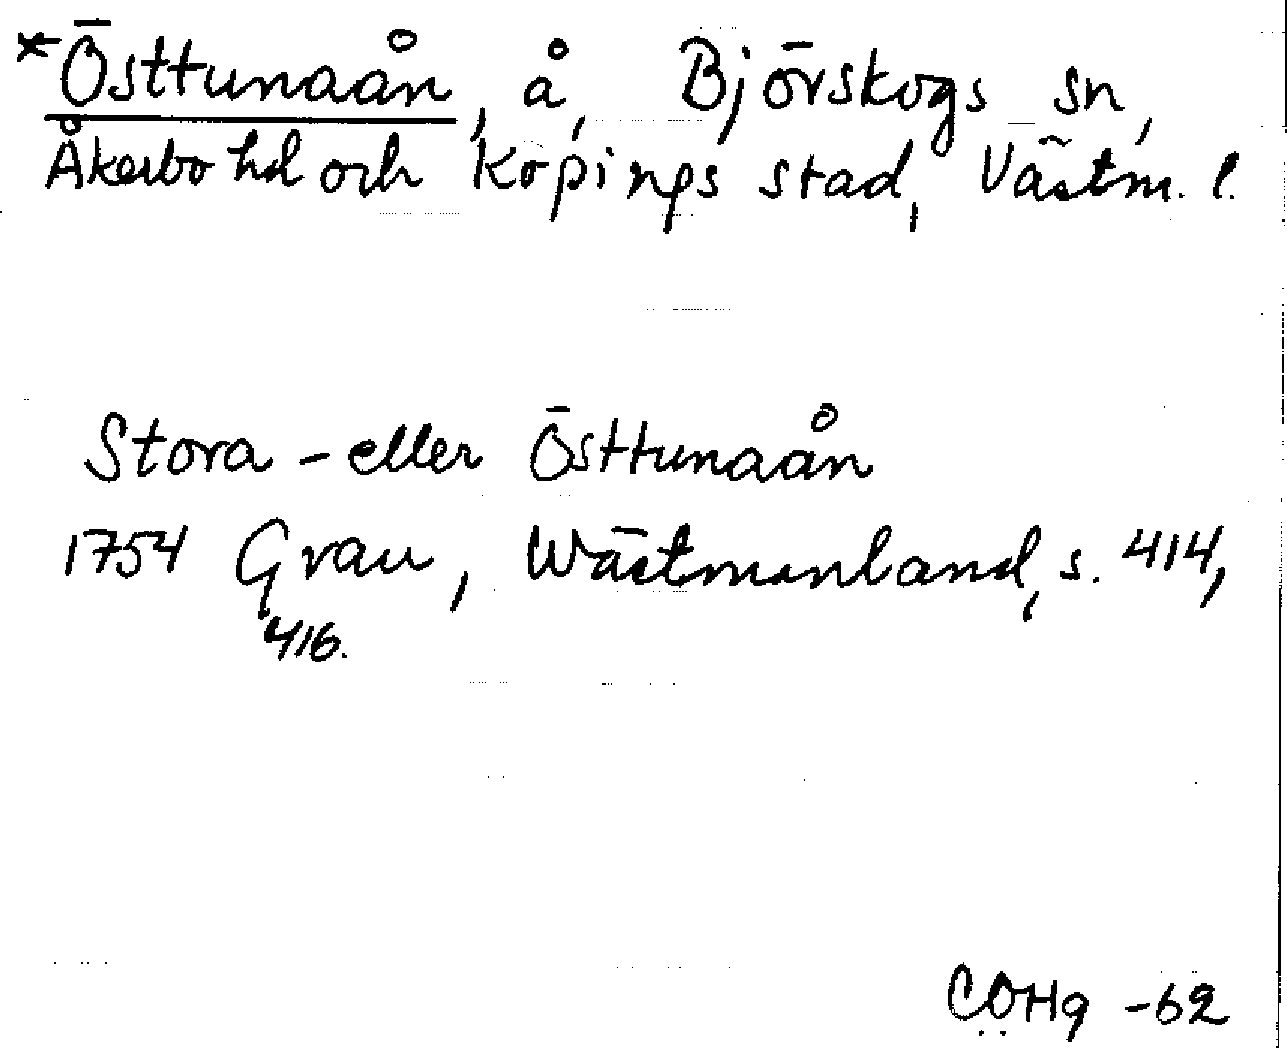 *Östtunaån, å, Björskogs sn,
Åkerbo hd och Köpings stad, Västm. l.
Stora - eller Östtunaån
1754 Grau, Wästmanland, s. 414,
416.
CÖHg -62